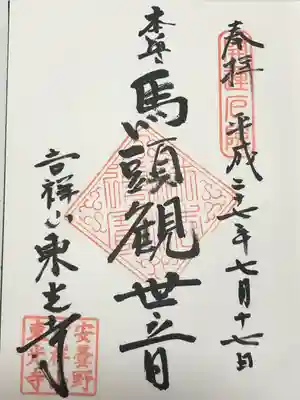 奉拝 平成二七年七月十七日
本尊 馬頭観世音
吉祥山東光寺
安曇野
東光寺